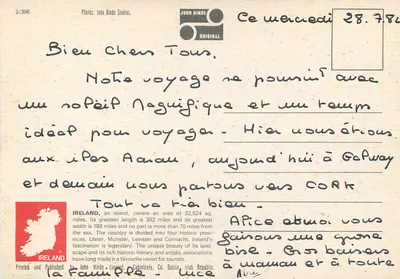 2/398
Photo: John Hinde Studios.
JOHN HINDE
ORIGINAL
Ce mercredi 28.7.82
Bien Chers Tous,
Notre voyage se poursuit avec
un soleil Magnifique et un temps
idéal pour voyager - Hier nous étions
aux îles Aaran, aujourd'hui à Galway
et demain nous partons vers CORK
Tout va très bien -
Alice et moi vous
faisons une grosse
bise - Gros baisers
à maman et à toute
la famille - Luce
Alice
IRELAND
IRELAND, an island, covers an area of 32,624 sq.
miles. Its greatest length is 302 miles and its greatest
width is 189 miles and no part is more than 70 miles from
the sea. The country is divided into four historic prov-
inces, Ulster, Munster, Leinster and Connacht. Ireland's
fascination is legendary. The unique beauty of its land-
scape and its rich historic and artistic associations
have long made it a favourite resort for tourists.
Printed and Published by John Hinde Limited, Cabinteely, Co. Dublin, Irish Republic